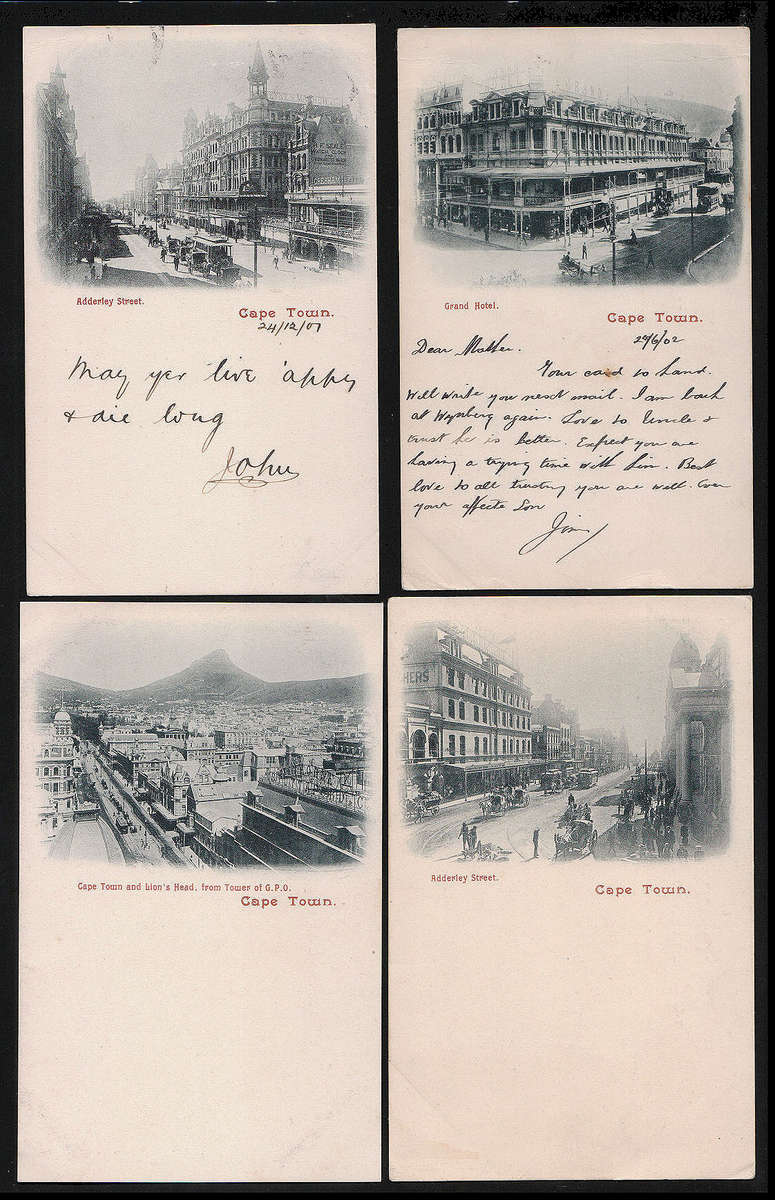 Adderley Street.
Cape Town.
24/12/01
May yer live 'appy
& die long
John
Grand Hotel.
Cape Town.
29/6/02
Dear Mother.
Your card to hand.
Will write you next mail. I am back
at Wynberg again. Love to Uncle &
trust he is better. Expect you are
having a trying time with him. Best
love to all trusting you are well. Ever
your affecte Son
Jim
Cape Town and Lion's Head, from Tower of G.P.O.
Cape Town.
HERS
Adderley Street.
Cape Town.